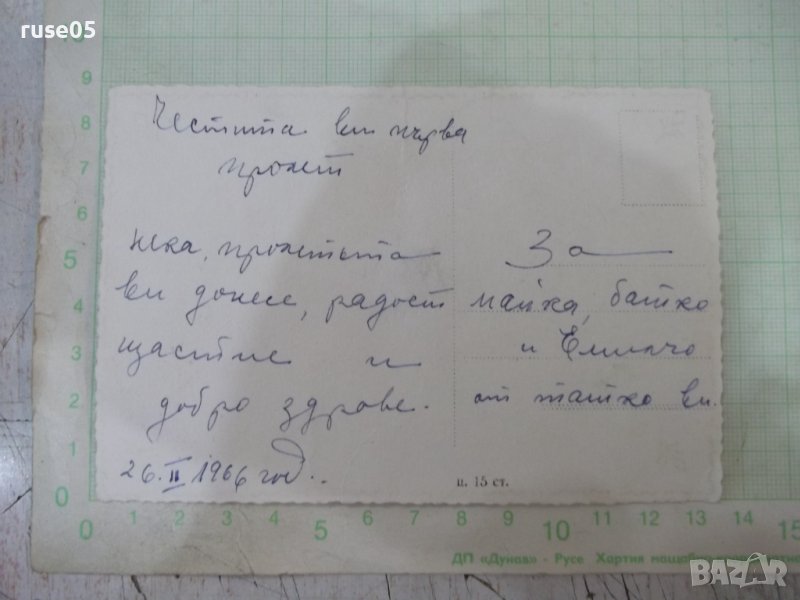 ruse05
Честита ви първа
пролет
Нека, пролетта
ви донесе, радост
щастие и
добро здраве.
26.II 1966 год..
За
майка, батко
и Емилчо
от татко ви.
ц. 15 ст.
10
9
8
7
6
5
4
3
2
1
0
0 1 2 3 4 5 6 7 8 9 10 11 12 13 14 15
ДП «Дунав» - Русе Хартия
BAZAR